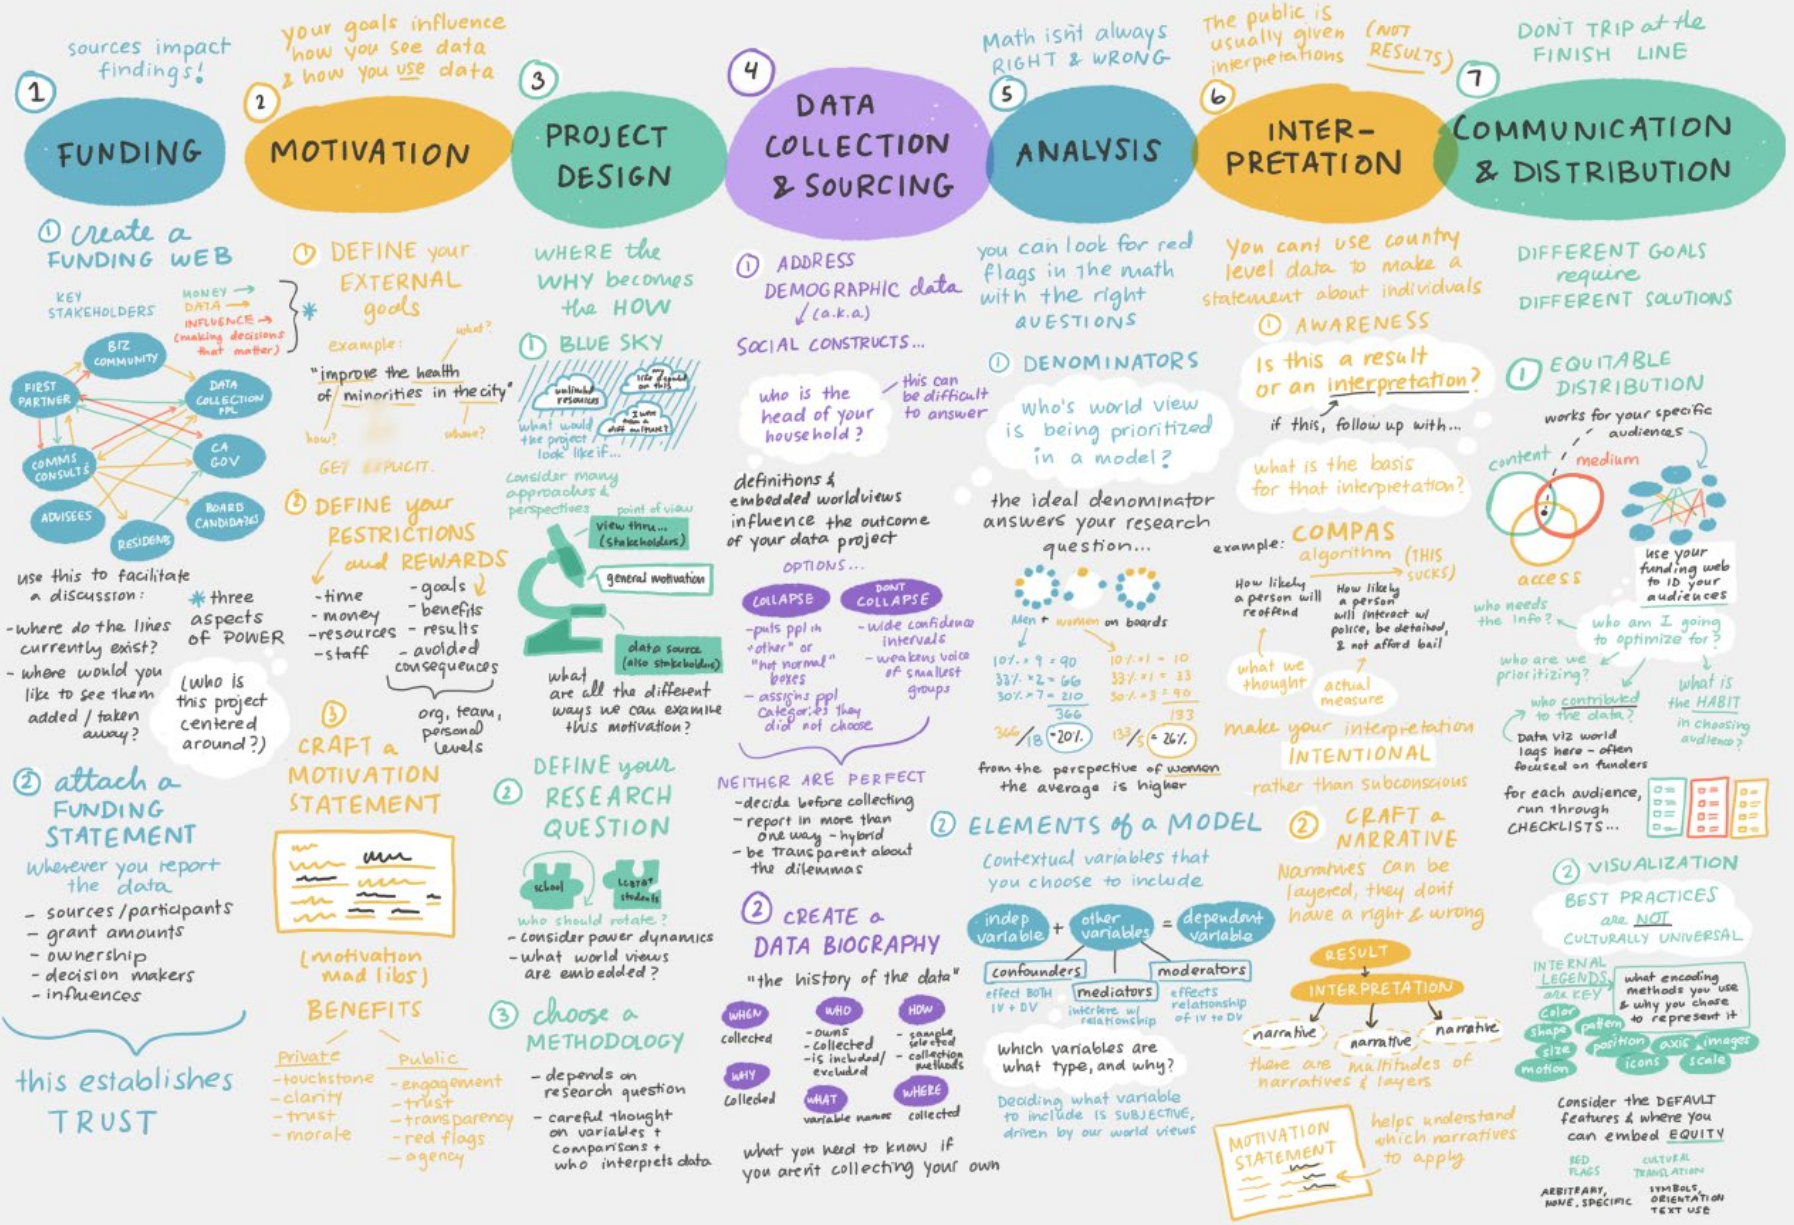 sources impact
findings!
1
FUNDING
① create a
FUNDING WEB
KEY
STAKEHOLDERS
MONEY →
DATA →
INFLUENCE →
(making decisions
that matter)
*
BIZ
COMMUNITY
FIRST
PARTNER
DATA
COLLECTION
PPL
COMMS
CONSULTS
CA
GOV
ADVISEES
BOARD
CANDIDATES
RESIDENTS
use this to facilitate
a discussion:
- where do the lines
currently exist?
- where would you
like to see them
added / taken
away?
* three
aspects
of POWER
(who is
this project
centered
around?)
② attach a
FUNDING
STATEMENT
wherever you report
the data
- sources/participants
- grant amounts
- ownership
- decision makers
- influences
this establishes
TRUST
your goals influence
how you see data
& how you use data
2
MOTIVATION
① DEFINE your
EXTERNAL
goals
example:
what?
"improve the health
of minorities in the city"
how?
where?
GET EXPLICIT.
② DEFINE your
RESTRICTIONS
and REWARDS
- time
- money
- resources
- staff
- goals
- benefits
- results
- avoided
consequences
org, team,
personal
levels
③
CRAFT a
MOTIVATION
STATEMENT
(motivation
mad libs)
BENEFITS
Private
- touchstone
- clarity
- trust
- morale
Public
- engagement
- trust
- transparency
- red flags
- agency
3
PROJECT
DESIGN
WHERE the
WHY becomes
the HOW
① BLUE SKY
unlimited
resources
my
life depended
on this
I were
from a
diff culture?
what would
the project
look like if...
consider many
approaches &
perspectives
point of view
view thru...
(stakeholders)
general motivation
data source
(also stakeholders)
what
are all the different
ways we can examine
this motivation?
② DEFINE your
RESEARCH
QUESTION
school
students
who should rotate?
- consider power dynamics
- what world views
are embedded?
③ choose a
METHODOLOGY
- depends on
research question
- careful thought
on variables +
comparisons +
who interprets data
4
DATA
COLLECTION
& SOURCING
① ADDRESS
DEMOGRAPHIC data
(a.k.a)
SOCIAL CONSTRUCTS...
who is the
head of your
household?
this can
be difficult
to answer
definitions &
embedded worldviews
influence the outcome
of your data project
OPTIONS...
COLLAPSE
- puts ppl in
"other" or
"not normal"
boxes
- assigns ppl
categories they
did not choose
DONT
COLLAPSE
- wide confidence
intervals
- weakens voice
of smallest
groups
NEITHER ARE PERFECT
- decide before collecting
- report in more than
one way - hybrid
- be transparent about
the dilemmas
② CREATE a
DATA BIOGRAPHY
"the history of the data"
WHEN
collected
WHO
- owns
- collected
- is included/
excluded
HOW
- sample
selected
- collection
methods
WHY
collected
WHAT
variable names
WHERE
collected
what you need to know if
you arent collecting your own
Math isn't always
RIGHT & WRONG
5
ANALYSIS
you can look for red
flags in the math
with the right
QUESTIONS
① DENOMINATORS
who's world view
is being prioritized
in a model?
the ideal denominator
answers your research
question...
Men + women on boards
10% × 9 = 90
33% × 2 = 66
30% × 7 = 210
366
366/18 = 20%
10% × 1 = 10
33% × 1 = 33
30% × 3 = 90
133
133/5 = 26%
from the perspective of women
the average is higher
② ELEMENTS of a MODEL
Contextual variables that
you choose to include
indep
variable
+
other
variables
=
dependent
variable
confounders
effect BOTH
IV + DV
mediators
interfere w/
relationship
moderators
effects
relationship
of IV to DV
which variables are
what type, and why?
Deciding what variable
to include is SUBJECTIVE,
driven by our world views
The public is
usually given
interpretations
(NOT
RESULTS)
6
INTER-
PRETATION
You cant use country
level data to make a
statement about individuals
① AWARENESS
Is this a result
or an interpretation?
if this, follow up with...
what is the basis
for that interpretation?
example: COMPAS
algorithm (THIS
SUCKS)
How likely
a person will
reoffend
How likely
a person
will interact w/
police, be detained,
& not afford bail
what we
thought
actual
measure
make your interpretation
INTENTIONAL
rather than subconscious
② CRAFT a
NARRATIVE
Narratives can be
layered, they don't
have a right & wrong
RESULT
INTERPRETATION
narrative
narrative
narrative
there are multitudes of
narratives & layers
MOTIVATION
STATEMENT
helps understand
which narratives
to apply
DON'T TRIP at the
FINISH LINE
7
COMMUNICATION
& DISTRIBUTION
DIFFERENT GOALS
require
DIFFERENT SOLUTIONS
① EQUITABLE
DISTRIBUTION
works for your specific
audiences
content
medium
access
use your
funding web
to ID your
audiences
who needs
the info?
who am I going
to optimize for?
who are we
prioritizing?
who contributed
to the data?
what is
the HABIT
in choosing
audience?
Data viz world
lags here - often
focused on funders
for each audience,
run through
CHECKLISTS...
② VISUALIZATION
BEST PRACTICES
are NOT
CULTURALLY UNIVERSAL
INTERNAL
LEGENDS
are KEY
what encoding
methods you use
& why you chose
to represent it
color
shape
pattern
size
position
axis
images
motion
icons
scale
Consider the DEFAULT
features & where you
can embed EQUITY
RED
FLAGS
ARBITRARY,
NONE, SPECIFIC
CULTURAL
TRANSLATION
SYMBOLS,
ORIENTATION
TEXT USE